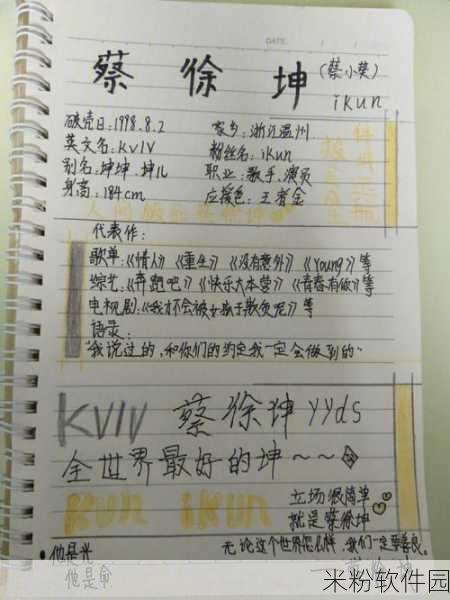 DATE
蔡 徐 坤 (蔡小葵)
ikun
破壳日:1998.8.2 家乡:浙江温州
英文名:KUN 粉丝名:ikun
别名:坤坤.坤儿 职业:歌手.演员
身高:184cm 应援色:王者金
代表作:
歌单:《情人》《重生》《没有意外》《Young》等
综艺:《奔跑吧》《快乐大本营》《青春有你》等
电视剧:《我才不会被女孩子欺负呢》等
语录:
"我说过的,和你们的约定我一定会做到的"
KUN 蔡徐坤yyds
全世界最好的坤~~
KUN iKUN 立场很简单
就是蔡徐坤
无论这个世界怎么样,我们一定要善良。
·他是光
他是命
米粉软件园